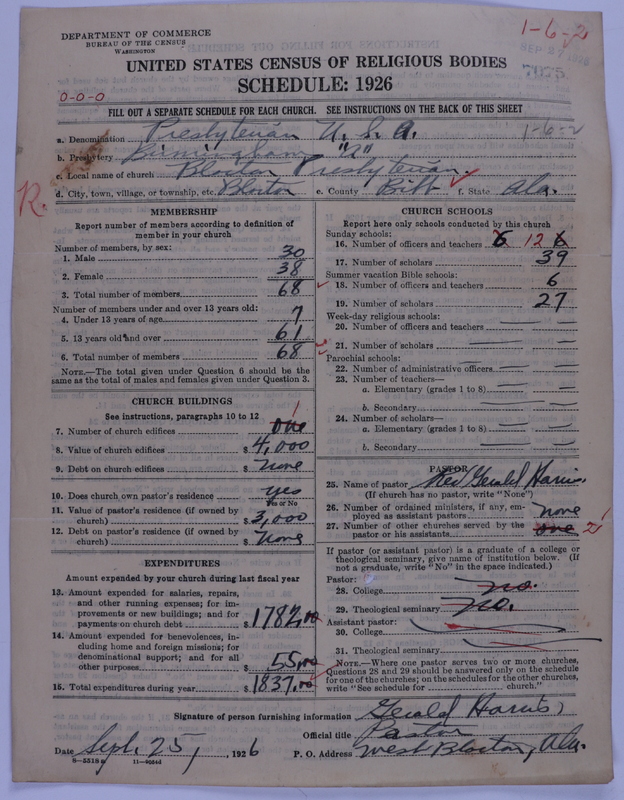 DEPARTMENT OF COMMERCE
BUREAU OF THE CENSUS
WASHINGTON
1-6-2
UNITED STATES CENSUS OF RELIGIOUS BODIES
SCHEDULE: 1926
0-0-0
FILL OUT A SEPARATE SCHEDULE FOR EACH CHURCH. SEE INSTRUCTIONS ON THE BACK OF THIS SHEET
a. Denomination Presbyterian U. S. A. 1-6-2
b. Presbytery Birmingham "A"
c. Local name of church Blocton Presbyterian.
d. City, town, village, or township, etc. Blocton e. County Bibb f. State Ala.
R.
MEMBERSHIP
Report number of members according to definition of
member in your church
Number of members, by sex:
1. Male 30
2. Female 38
3. Total number of members 68
Number of members under and over 13 years old:
4. Under 13 years of age 7
5. 13 years old and over 61
6. Total number of members 68
NOTE.—The total given under Question 6 should be the
same as the total of males and females given under Question 3.
CHURCH BUILDINGS
See instructions, paragraphs 10 to 12
1
7. Number of church edifices one
8. Value of church edifices $ 4,000
9. Debt on church edifices $ none
10. Does church own pastor's residence yes
Yes or No
11. Value of pastor's residence (if owned by
church) $ 3,000
12. Debt on pastor's residence (if owned by
church) $ none
EXPENDITURES
Amount expended by your church during last fiscal year
13. Amount expended for salaries, repairs,
and other running expenses; for im-
provements or new buildings; and for
payments on church debt $ 1782.00
14. Amount expended for benevolences, in-
cluding home and foreign missions; for
denominational support; and for all
other purposes $ 55.00
15. Total expenditures during year $ 1837.00
CHURCH SCHOOLS
Report here only schools conducted by this church
Sunday schools:
16. Number of officers and teachers 6 12 6
17. Number of scholars 39
Summer vacation Bible schools:
18. Number of officers and teachers 6
19. Number of scholars 27
Week-day religious schools:
20. Number of officers and teachers
21. Number of scholars
Parochial schools:
22. Number of administrative officers
23. Number of teachers—
a. Elementary (grades 1 to 8)
b. Secondary
24. Number of scholars—
a. Elementary (grades 1 to 8)
b. Secondary
PASTOR
25. Name of pastor Rev Gerald Harris.
(If church has no pastor, write "None")
26. Number of ordained ministers, if any, em-
ployed as assistant pastors none
27. Number of other churches served by the
pastor or his assistants one 2
If pastor (or assistant pastor) is a graduate of a college or
theological seminary, give name of institution below. (If
not a graduate, write "No" in the space indicated.)
Pastor:
28. College no.
29. Theological seminary no.
Assistant pastor:
30. College
31. Theological seminary
NOTE.—Where one pastor serves two or more churches,
Questions 28 and 29 should be answered only on the schedule
for one of the churches; on the schedules for the other churches,
write "See schedule for church."
Signature of person furnishing information Gerald Harris,
Official title Pastor
Date Sept. 25, , 1926 P. O. Address West Blocton, Ala.